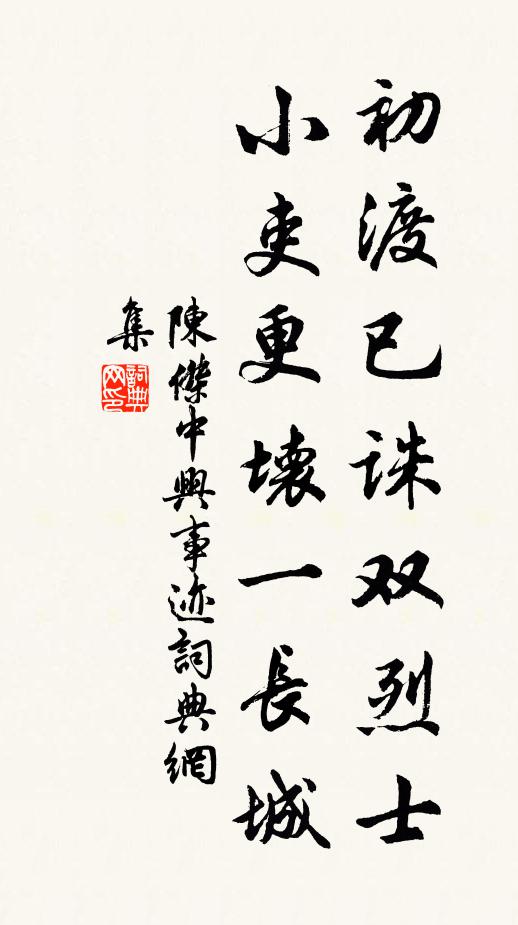 初渡已诛双烈士
小吏更壞一長城
陳傑中興事迹詞典網
集
詞典
网印